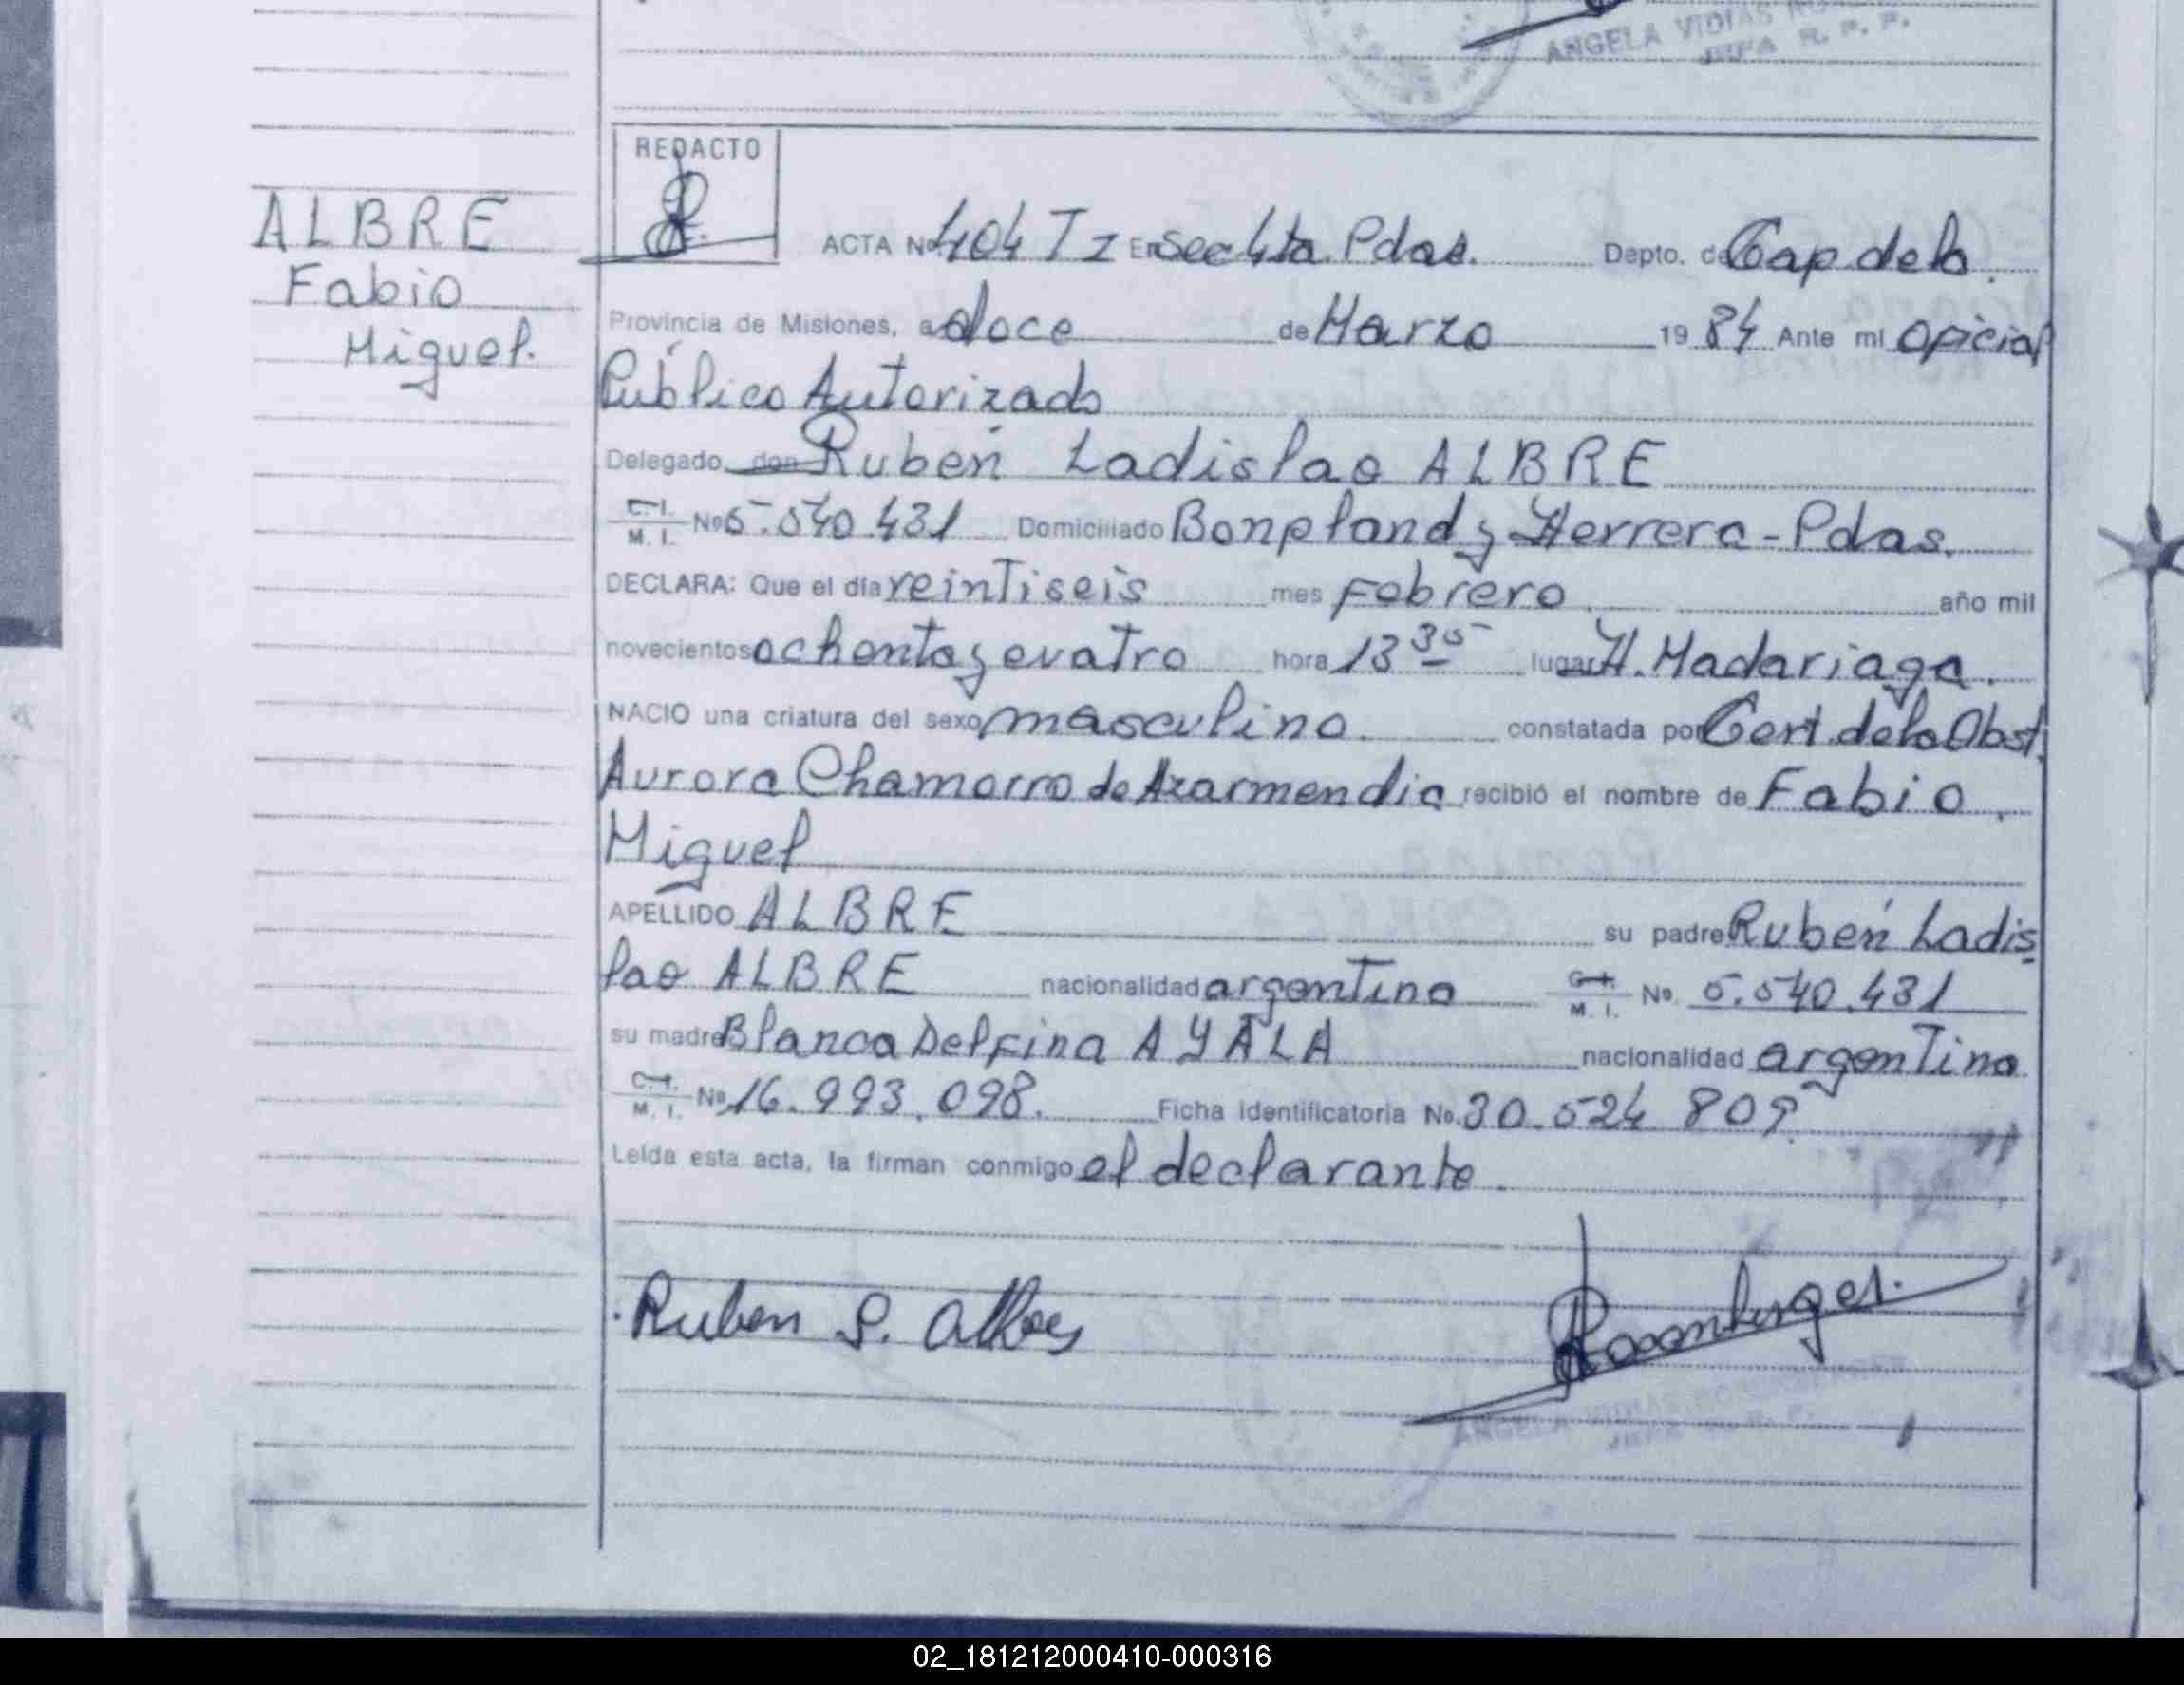 ANGELA VIDIAS
JEFA R. P. P.
REDACTO
ALBRE
Fabio
Miguel.
ACTA No. 404 T I En Sec 4ta. Pdas. Depto. de Cap de la
Provincia de Misiones, a doce de Marzo 1984 Ante mi Oficial
Público Autorizado
Delegado don Rubén Ladislao ALBRE
C. I.
M. I. No 5.540.431 Domiciliado Bonpland y Herrera - Pdas.
DECLARA: Que el día veintiseis mes Febrero año mil
novecientos ochenta y cuatro hora 13 35 lugar H. Madariaga.
NACIO una criatura del sexo masculino constatada por Cert. de la Obst.
Aurora Chamorro de Azarmendia recibió el nombre de Fabio
Miguel
APELLIDO ALBRE su padre Rubén Ladis
lao ALBRE nacionalidad argentino C. I.
M. I. No. 5.540.431
su madre Blanca Delfina AYALA nacionalidad argentina
C. I.
M. I. No 16.993.098. Ficha Identificatoria No. 30.524 809
Leída esta acta, la firman conmigo el declarante.
Ruben
ANGELA VIDIAS
02_181212000410-000316